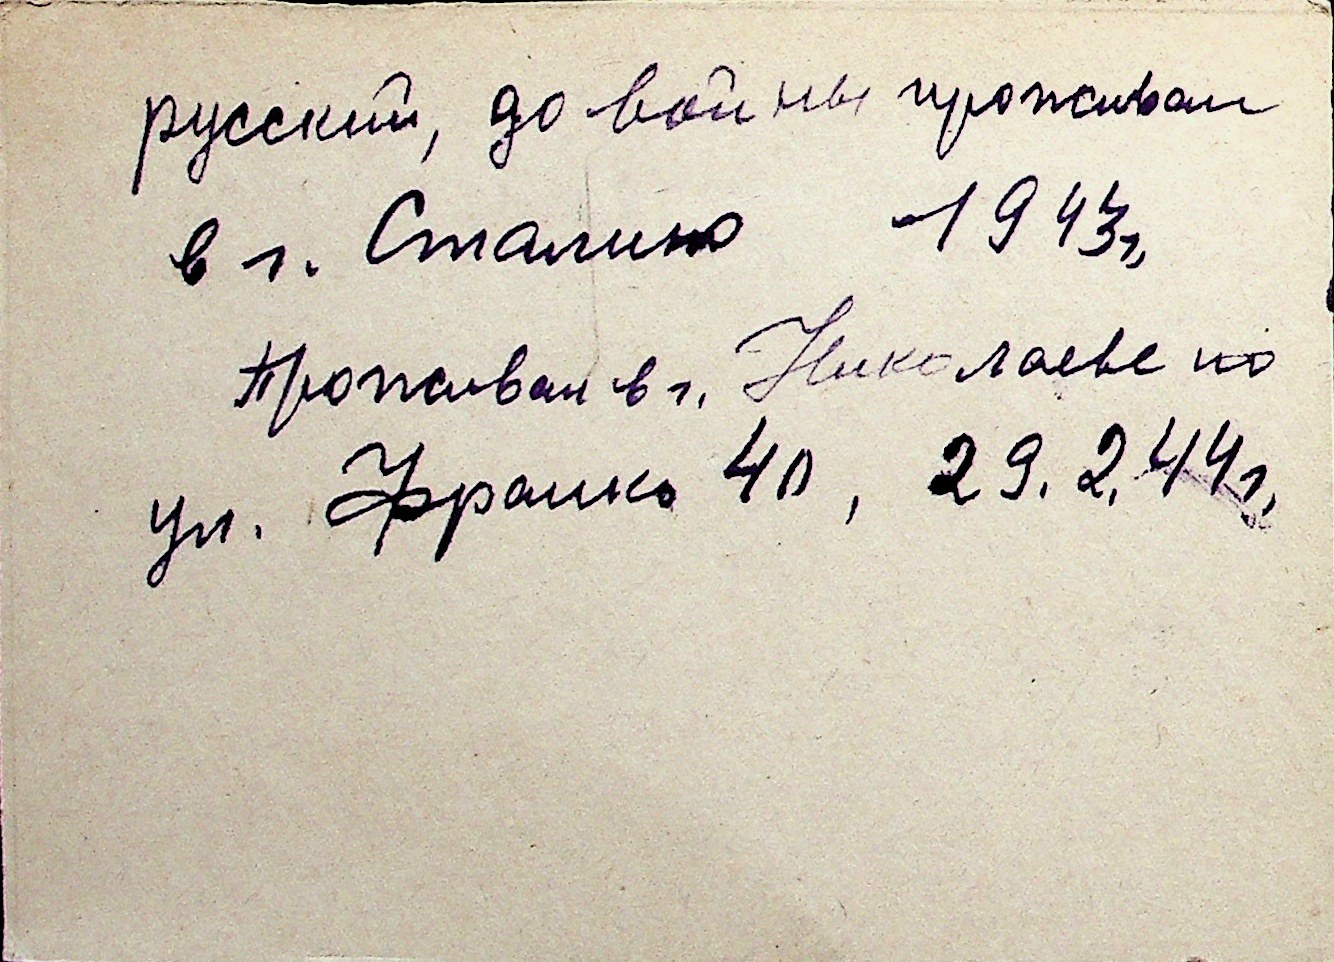 русский, до войны проживал
в г. Сталино 1943 г,
Проживал в г. Николаеве по
ул. Франко 40, 29.2.44 г,